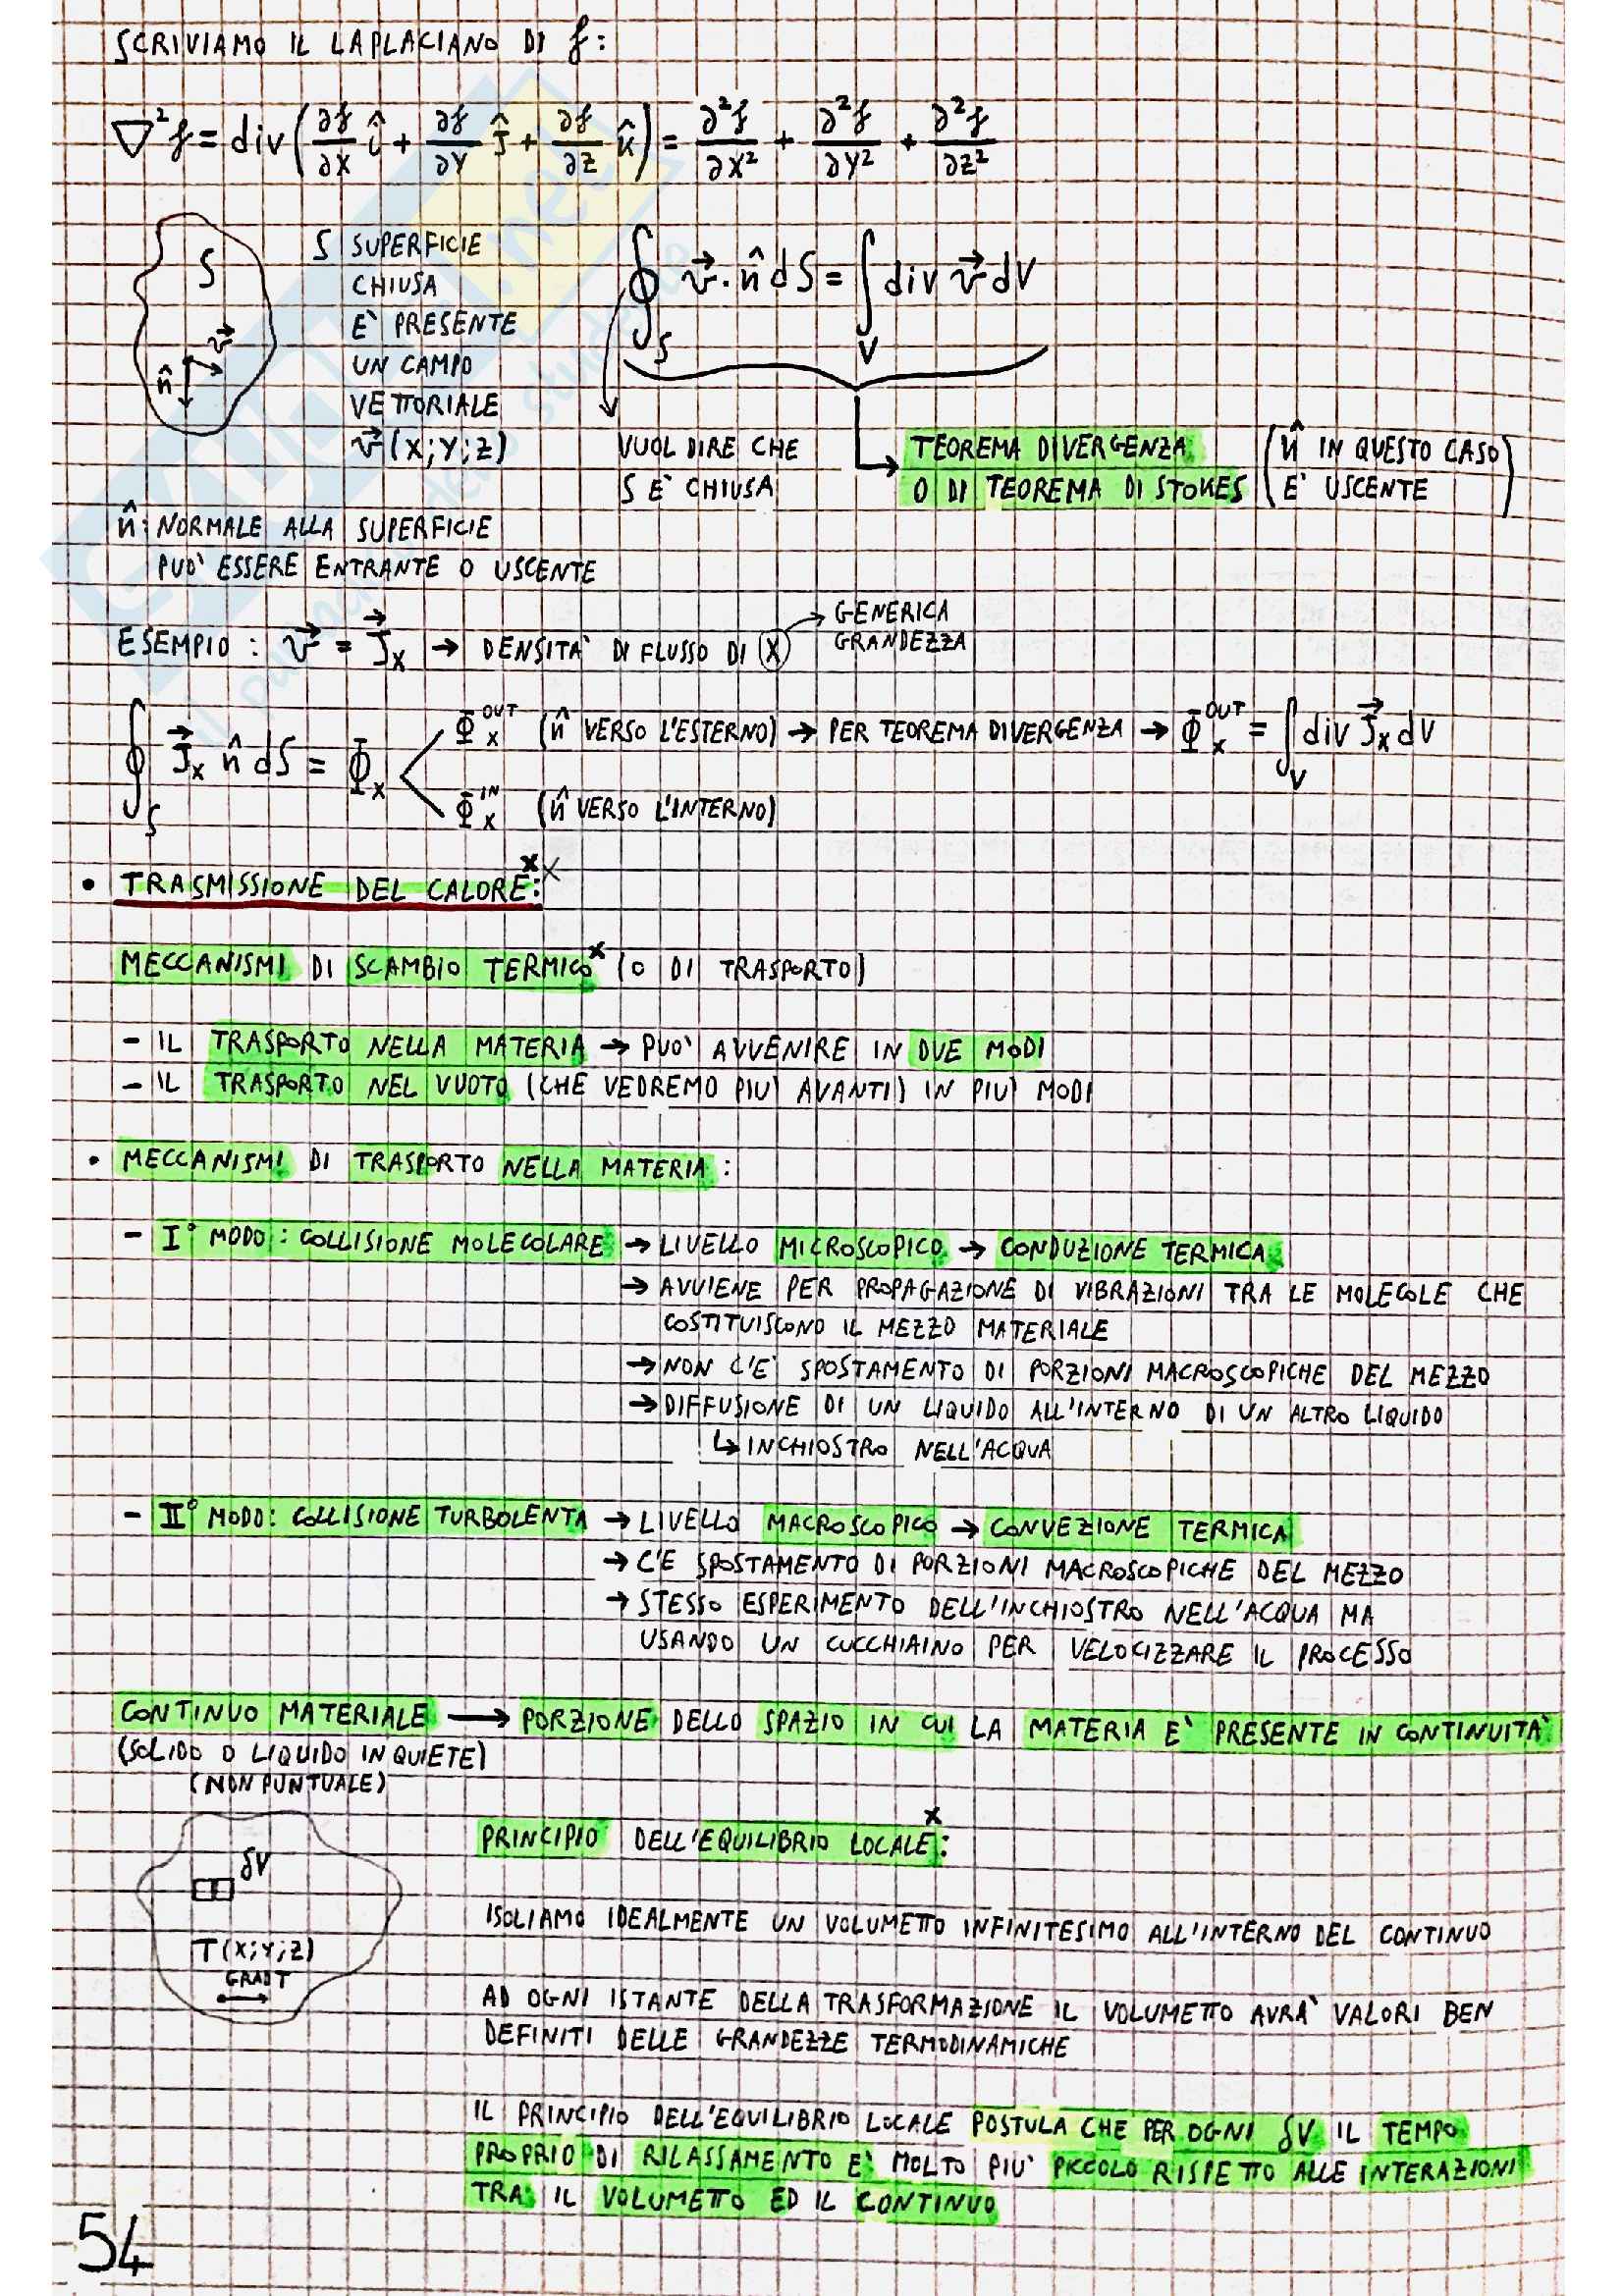 SCRIVIAMO IL LAPLACIANO DI f:
∇²f = div(∂f/∂X î + ∂f/∂Y ĵ + ∂f/∂Z k̂) = ∂²f/∂X² + ∂²f/∂Y² + ∂²f/∂Z²
S
v⃗
n̂
S SUPERFICIE
CHIUSA
E' PRESENTE
UN CAMPO
VETTORIALE
v⃗(X;Y;Z)
∮_S v⃗·n̂ dS = ∫_V div v⃗ dV
VUOL DIRE CHE
S E' CHIUSA
TEOREMA DIVERGENZA
O DI TEOREMA DI STOKES
(n̂ IN QUESTO CASO
E' USCENTE)
n̂: NORMALE ALLA SUPERFICIE
PUO' ESSERE ENTRANTE O USCENTE
ESEMPIO: v⃗ = J⃗x → DENSITA' DI FLUSSO DI X → GENERICA
GRANDEZZA
∮_S J⃗x n̂ dS = Φx
Φx^OUT (n̂ VERSO L'ESTERNO) → PER TEOREMA DIVERGENZA → Φx^OUT = ∫_V div J⃗x dV
Φx^IN (n̂ VERSO L'INTERNO)
• TRASMISSIONE DEL CALORE: x x
MECCANISMI DI SCAMBIO TERMICO x (O DI TRASPORTO)
- IL TRASPORTO NELLA MATERIA → PUO' AVVENIRE IN DUE MODI
- IL TRASPORTO NEL VUOTO (CHE VEDREMO PIU' AVANTI) IN PIU' MODI
• MECCANISMI DI TRASPORTO NELLA MATERIA:
- I° MODO: COLLISIONE MOLECOLARE → LIVELLO MICROSCOPICO → CONDUZIONE TERMICA
→ AVVIENE PER PROPAGAZIONE DI VIBRAZIONI TRA LE MOLECOLE CHE
COSTITUISCONO IL MEZZO MATERIALE
→ NON C'E' SPOSTAMENTO DI PORZIONI MACROSCOPICHE DEL MEZZO
→ DIFFUSIONE DI UN LIQUIDO ALL'INTERNO DI UN ALTRO LIQUIDO
↳ INCHIOSTRO NELL'ACQUA
- II° MODO: COLLISIONE TURBOLENTA → LIVELLO MACROSCOPICO → CONVEZIONE TERMICA
→ C'E SPOSTAMENTO DI PORZIONI MACROSCOPICHE DEL MEZZO
→ STESSO ESPERIMENTO DELL'INCHIOSTRO NELL'ACQUA MA
USANDO UN CUCCHIAINO PER VELOCIZZARE IL PROCESSO
CONTINUO MATERIALE → PORZIONE DELLO SPAZIO IN CUI LA MATERIA E' PRESENTE IN CONTINUITA'
(SOLIDO O LIQUIDO IN QUIETE)
(NON PUNTUALE)
δV
T(X;Y;Z)
GRAD T
PRINCIPIO DELL'EQUILIBRIO LOCALE: x
ISOLIAMO IDEALMENTE UN VOLUMETTO INFINITESIMO ALL'INTERNO DEL CONTINUO
AD OGNI ISTANTE DELLA TRASFORMAZIONE IL VOLUMETTO AVRA' VALORI BEN
DEFINITI DELLE GRANDEZZE TERMODINAMICHE
IL PRINCIPIO DELL'EQUILIBRIO LOCALE POSTULA CHE PER OGNI δV IL TEMPO
PROPRIO DI RILASSAMENTO E' MOLTO PIU' PICCOLO RISPETTO ALLE INTERAZIONI
TRA IL VOLUMETTO ED IL CONTINUO
54